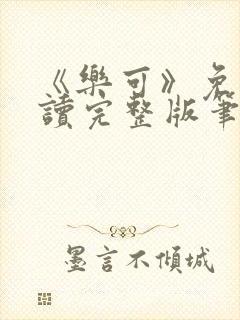 《樂可》免
讀完整版筆
墨言不傾城